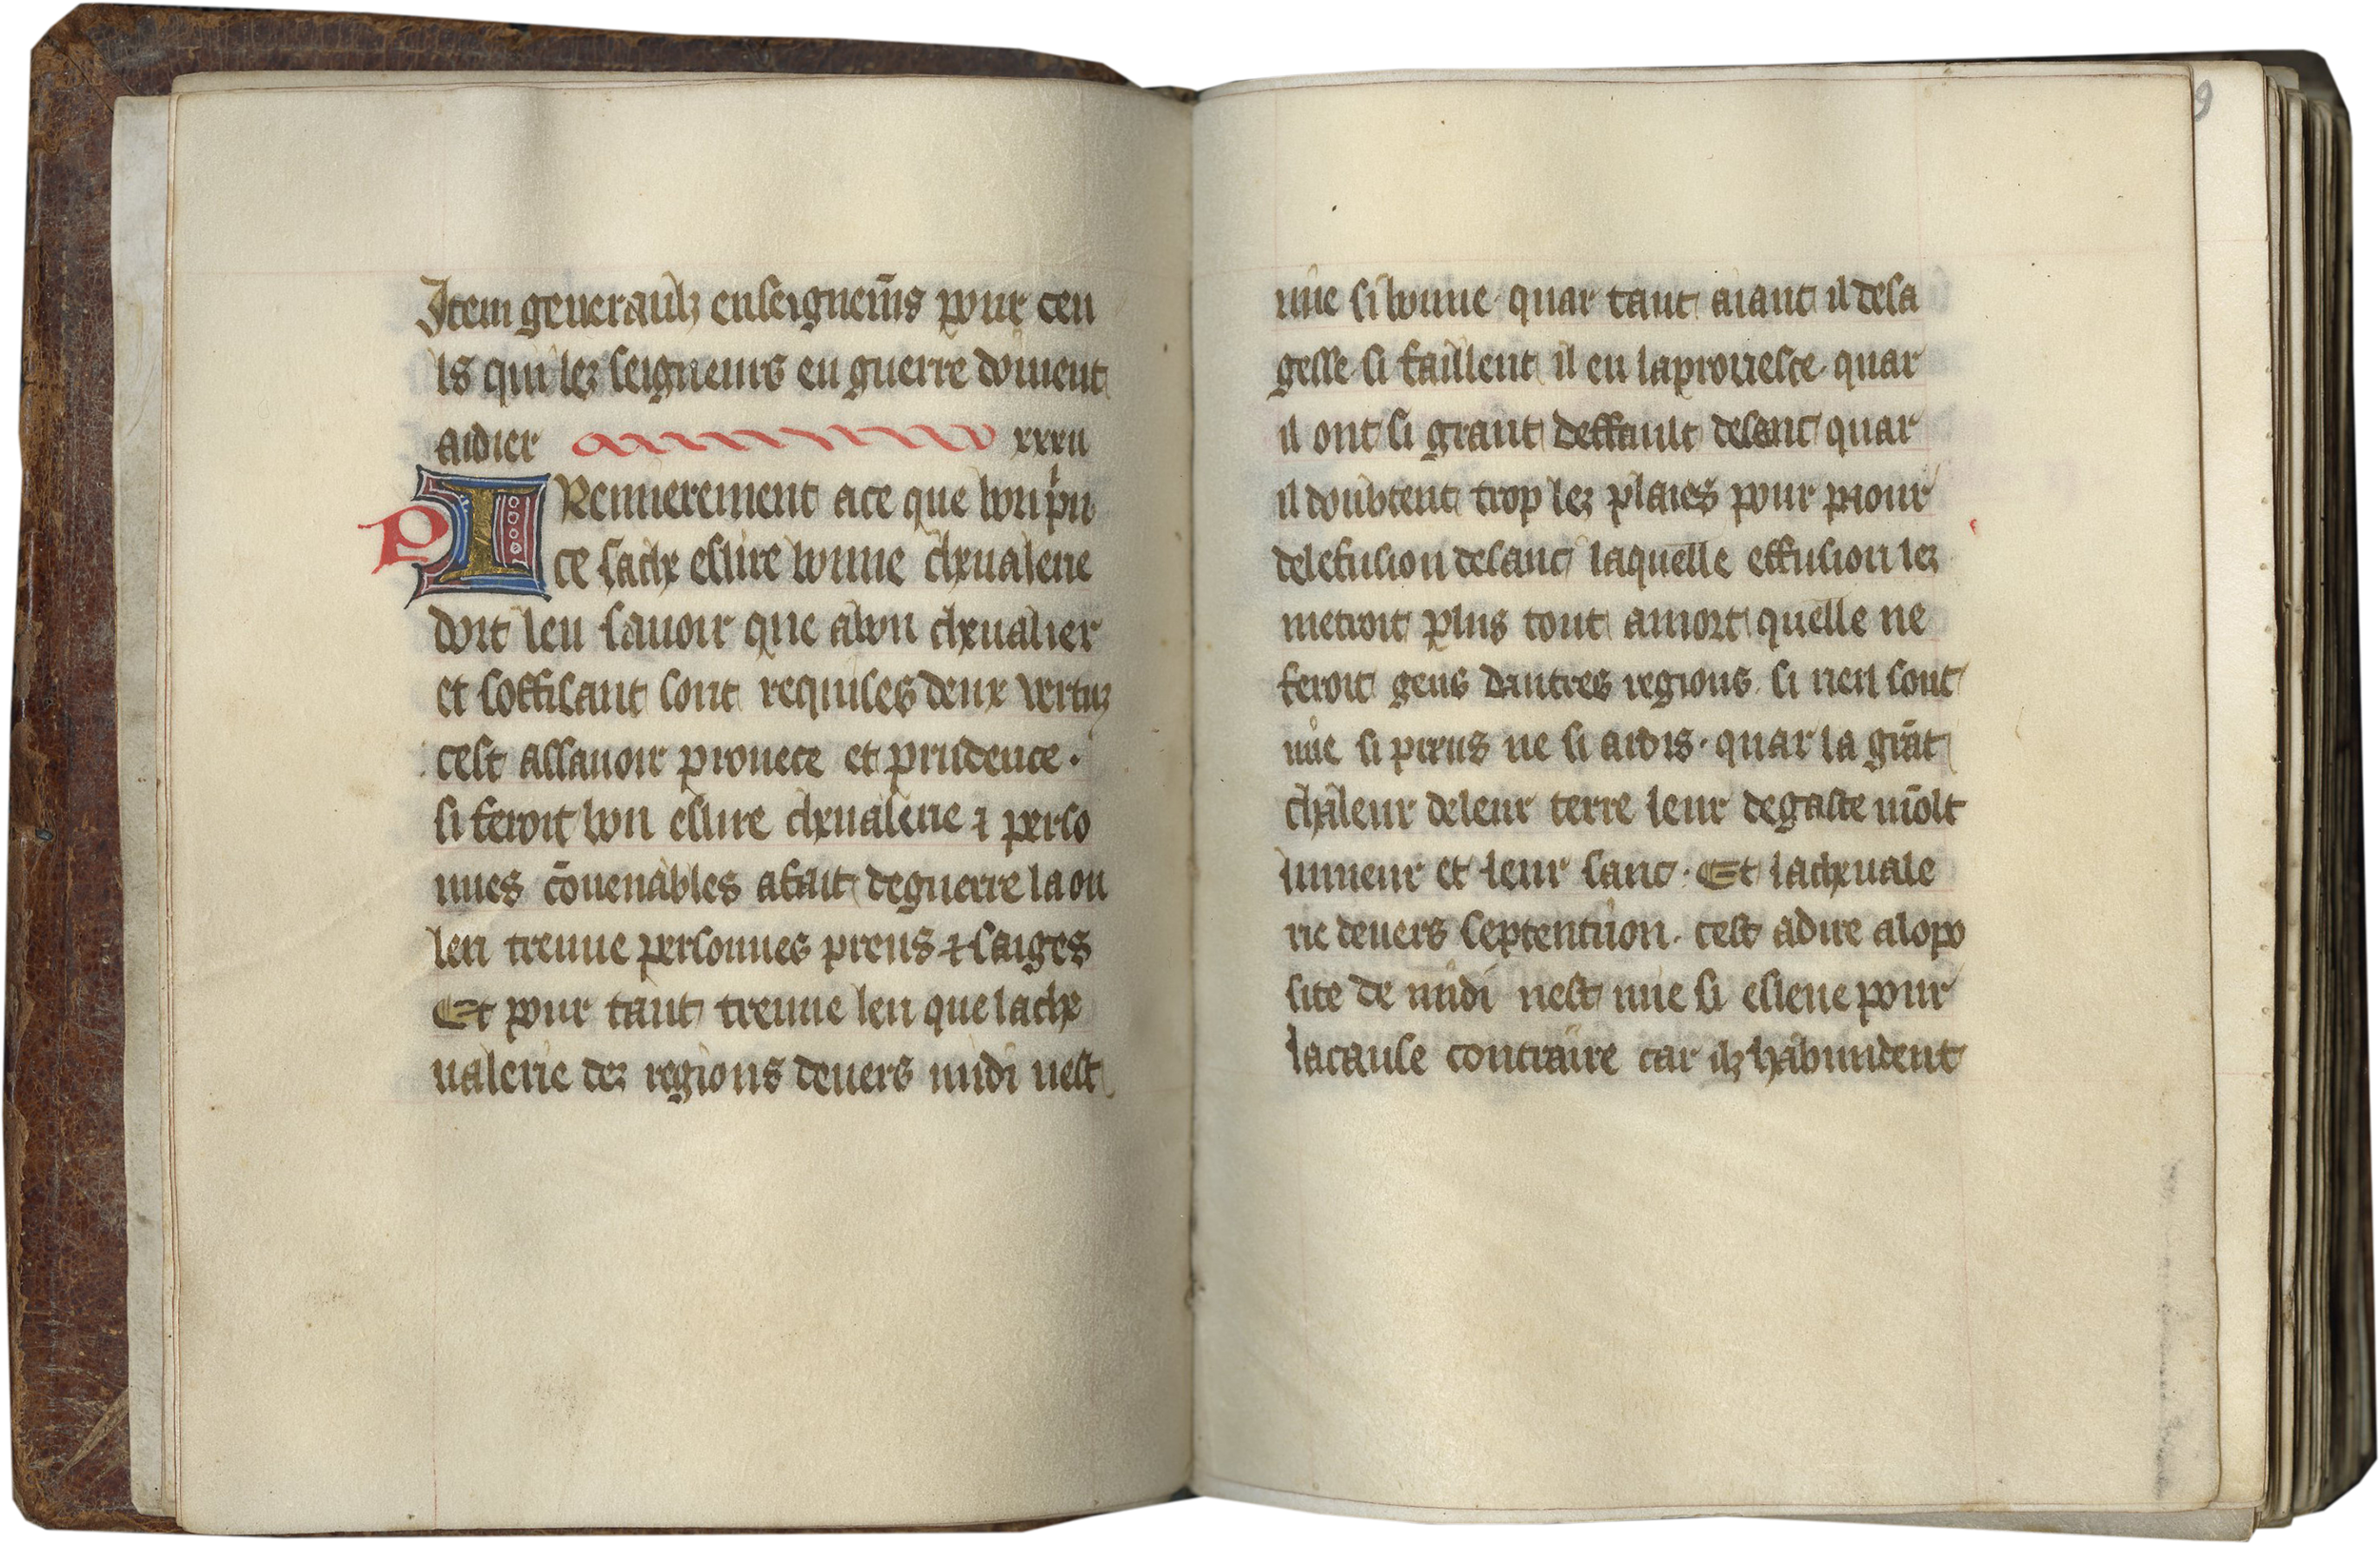 Item generaulz enseignem̄s pour ceu
ls qui lez seigneurs en guerre doiuent
aidier xxxii
P I Remierement ace que bon pri
ce sache eslire bonne cheualerie
doit len sauoir que abon cheualier
et soffisant sont requises deux vertuz
cest assauoir prouece et prudence.
si feroit bon eslire cheualerie ⁊ perso
nnes cōuenables afait deguerre la ou
len treuue personnes preus ⁊ saiges
Et pour tant treuue len que lache
ualerie dez regions deuers midi nest
9
mie si bonne quar tant aiant il desa
gesse si faillent il en laprouesce quar
il ont si grant deffault desanc quar
il doubtent trop lez plaies pour paour
delefusion desanc laquelle effusion lez
metroit plus tout amort quelle ne
feroit gens dautres regions si nen sont
mie si preus ne si ardis. quar la grāt
chaleur deleur terre leur degaste mōlt
lumeur et leur sanc. Et lacheuale
rie deuers septentrion. cest adire alopo
site de midi nest mie si esleue pour
lacause contraire car ilz habundent